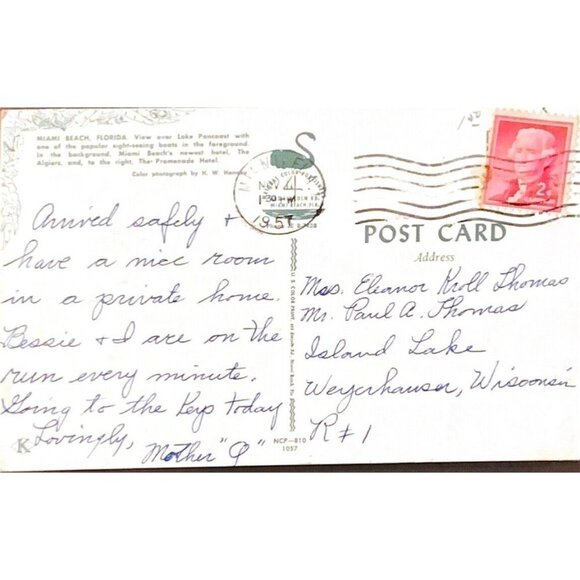 MIAMI BEACH, FLORIDA. View over Lake Pancoast with
one of the popular sight-seeing boats in the foreground.
In the background, Miami Beach's newest hotel, The
Algiers, and, to the right, The Promenade Hotel.
Color photograph by H. W. Hannau
Arrived safely +
have a nice room
in a private home.
Bessie + I are on the
run every minute.
Going to the Keys today
Lovingly,
Mother "O"
K
1957
MIAMI BEACH, FLA.
NCP-810
1057
2¢
POST CARD
Address
Mrs. Eleanor Kroll Thomas
Mr. Paul A. Thomas
Island Lake
Weyerhauser, Wisconsin
R # 1